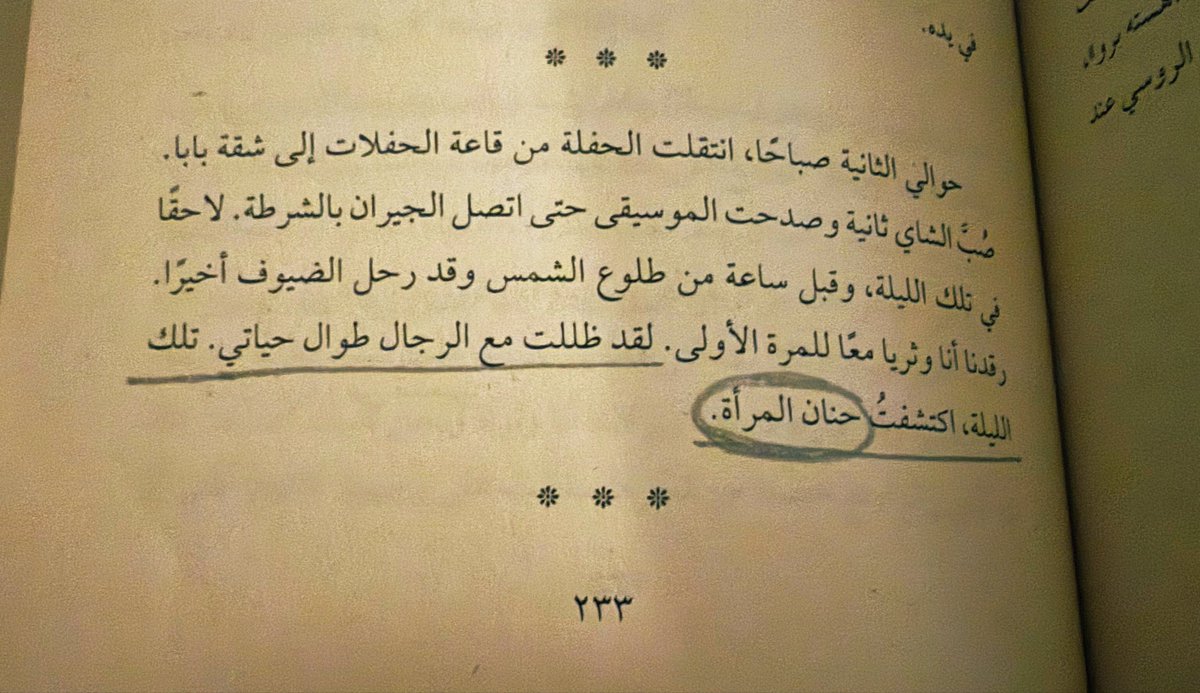 في يده.
* * *
حوالي الثانية صباحًا، انتقلت الحفلة من قاعة الحفلات إلى شقة بابا.
صُبَّ الشاي ثانية وصدحت الموسيقى حتى اتصل الجيران بالشرطة. لاحقًا
في تلك الليلة، وقبل ساعة من طلوع الشمس وقد رحل الضيوف أخيرًا.
رقدنا أنا وثريا معًا للمرة الأولى. لقد ظللت مع الرجال طوال حياتي. تلك
الليلة، اكتشفتُ حنان المرأة.
* * *
٢٣٣
الرؤسي عند